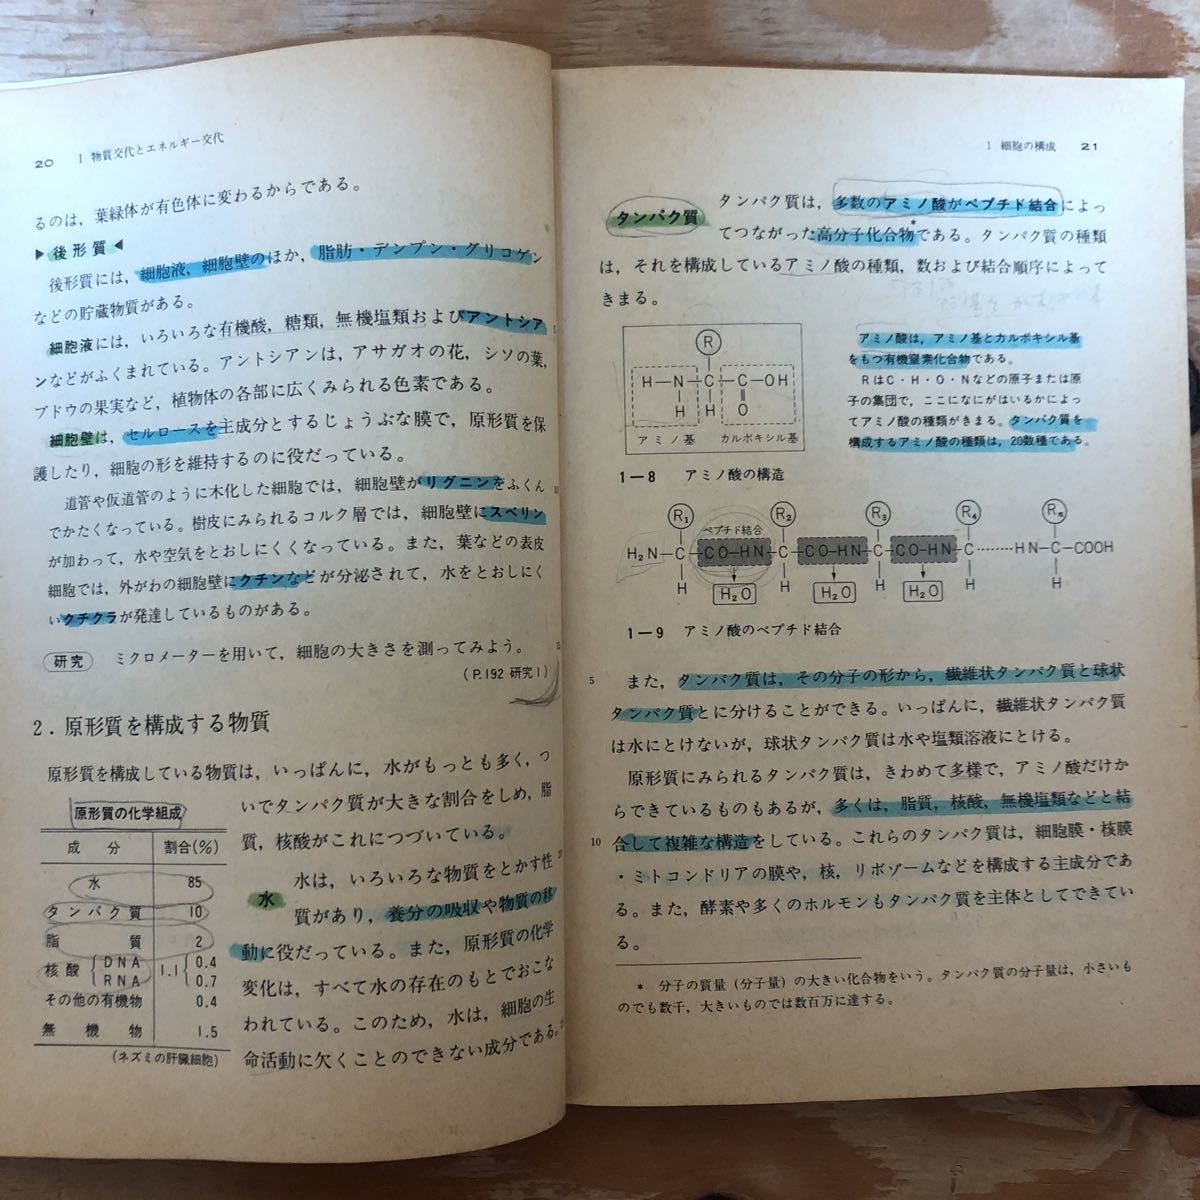 20 I 物質交代とエネルギー交代
るのは，葉緑体が有色体に変わるからである。
▶後形質◀
後形質には，細胞液，細胞壁のほか，脂肪・デンプン・グリコゲン
などの貯蔵物質がある。
細胞液には，いろいろな有機酸，糖類，無機塩類およびアントシア
ンなどがふくまれている。アントシアンは，アサガオの花，シソの葉，
ブドウの果実など，植物体の各部に広くみられる色素である。
細胞壁は，セルロースを主成分とするじょうぶな膜で，原形質を保
護したり，細胞の形を維持するのに役だっている。
道管や仮道管のように木化した細胞では，細胞壁がリグニンをふくん
でかたくなっている。樹皮にみられるコルク層では，細胞壁にスベリン
が加わって，水や空気をとおしにくくなっている。また，葉などの表皮
細胞では，外がわの細胞壁にクチンなどが分泌されて，水をとおしにく
いクチクラが発達しているものがある。
研究 ミクロメーターを用いて，細胞の大きさを測ってみよう。
(P.192 研究1)
2．原形質を構成する物質
原形質を構成している物質は，いっぱんに，水がもっとも多く，つ
いでタンパク質が大きな割合をしめ，脂
質，核酸がこれにつづいている。
原形質の化学組成
成分 割合(%)
水 85
タンパク質 10
脂質 2
核酸 { DNA RNA 1.1 { 0.4 0.7
その他の有機物 0.4
無機物 1.5
(ネズミの肝臓細胞)
水 水は，いろいろな物質をとかす性
質があり，養分の吸収や物質の移
動に役だっている。また，原形質の化学
変化は，すべて水の存在のもとでおこな
われている。このため，水は，細胞の生
命活動に欠くことのできない成分である。
1 細胞の構成 21
タンパク質 タンパク質は，多数のアミノ酸がペプチド結合によっ
てつながった高分子化合物*である。タンパク質の種類
は，それを構成しているアミノ酸の種類，数および結合順序によって
きまる。
R
H—N—C—C—OH
H H O
アミノ基 カルボキシル基
1—8 アミノ酸の構造
アミノ酸は，アミノ基とカルボキシル基
をもつ有機窒素化合物である。
RはC・H・O・Nなどの原子または原
子の集団で，ここになにがはいるかによっ
てアミノ酸の種類がきまる。タンパク質を
構成するアミノ酸の種類は，20数種である。
R1 ペプチド結合 R2 R3 R4 Rn
H2N—C—CO—HN—C—CO—HN—C—CO—HN—C……HN—C—COOH
H H H H H
H2O H2O H2O
1—9 アミノ酸のペプチド結合
5 また，タンパク質は，その分子の形から，繊維状タンパク質と球状
タンパク質とに分けることができる。いっぱんに，繊維状タンパク質
は水にとけないが，球状タンパク質は水や塩類溶液にとける。
原形質にみられるタンパク質は，きわめて多様で，アミノ酸だけか
らできているものもあるが，多くは，脂質，核酸，無機塩類などと結
10 合して複雑な構造をしている。これらのタンパク質は，細胞膜・核膜
・ミトコンドリアの膜や，核，リボゾームなどを構成する主成分であ
る。また，酵素や多くのホルモンもタンパク質を主体としてできてい
る。
* 分子の質量（分子量）の大きい化合物をいう。タンパク質の分子量は，小さいも
のでも数千，大きいものでは数百万に達する。